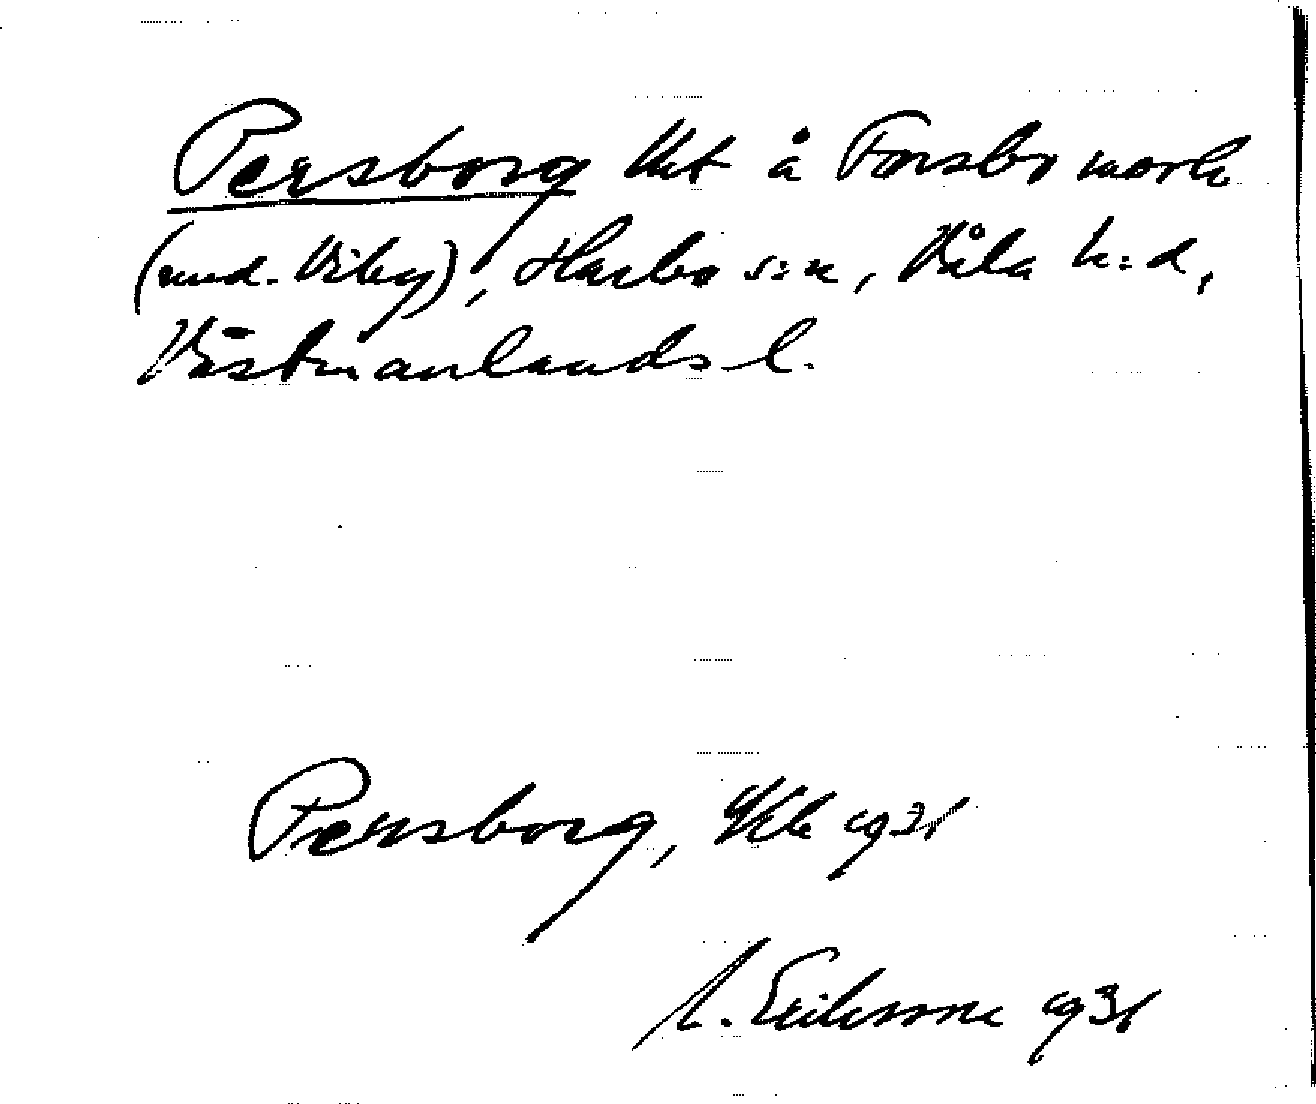 Persborg lht å Forsbo mark
(und. Viby), Harbo s:n, Våla h:d,
Västmanlands l.
Persborg, 1931
A. Eriksson 1931